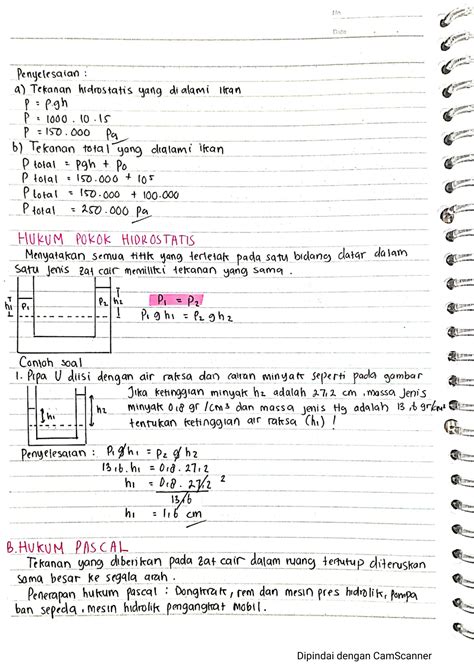 No
Date
Penyelesaian :
a) Tekanan hidrostatis yang dialami Ikan
P = ρgh
P = 1000 . 10 . 15
P = 150.000 Pa
b) Tekanan total yang dialami Ikan
P total = ρgh + P0
P total = 150.000 + 10⁵
P total = 150.000 + 100.000
P total = 250.000 Pa
HUKUM POKOK HIDROSTATIS
Menyatakan semua titik yang terletak pada satu bidang datar dalam
satu jenis zat cair memiliki tekanan yang sama.
h1 P1 P2 h2
P1 = P2
ρ1 g h1 = ρ2 g h2
Contoh soal
1. Pipa U diisi dengan air raksa dan cairan minyak seperti pada gambar
Jika ketinggian minyak h2 adalah 27,2 cm, massa jenis
minyak 0,8 gr/cm3 dan massa jenis Hg adalah 13,6 gr/cm3
tentukan ketinggian air raksa (h1) !
h1 h2
Penyelesaian : ρ1 g h1 = ρ2 g h2
13,6 . h1 = 0,8 . 27,2
h1 = 0,8 . 27,2 2
13,6
h1 = 1,6 cm
B. HUKUM PASCAL
Tekanan yang diberikan pada zat cair dalam ruang tertutup diteruskan
sama besar ke segala arah.
Penerapan hukum pascal : Dongkrak, rem dan mesin pres hidrolik, pompa
ban sepeda, mesin hidrolik pengangkat mobil.
Dipindai dengan CamScanner